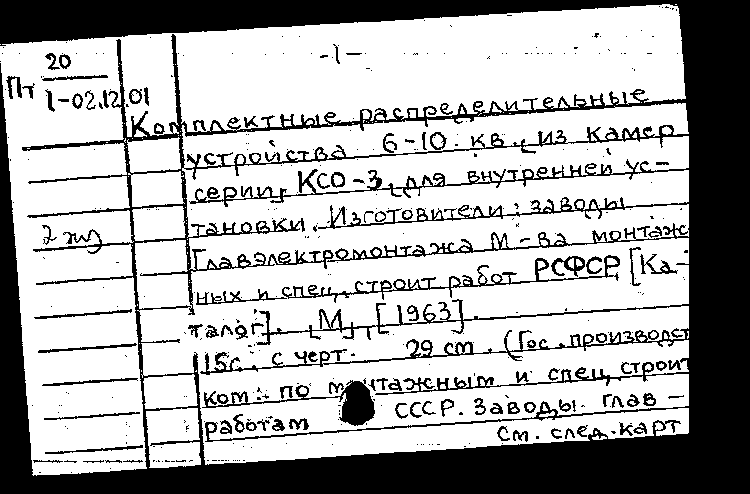 -1-
Пт 20
1-02.12.01
Комплектные распределительные
устройства 6-10 кв., из камер
серии, КСО-3, для внутренней ус-
тановки. Изготовители: заводы
2 экз
Главэлектромонтажа М-ва монтаж
ных и спец. строит работ РСФСР [Ка-
талог]. [М], [1963].
15с. с черт. 29 cm. (Гос. производст
ком: по монтажным и спец, строит
работам СССР. Заводы. Глав-
См. след. карт